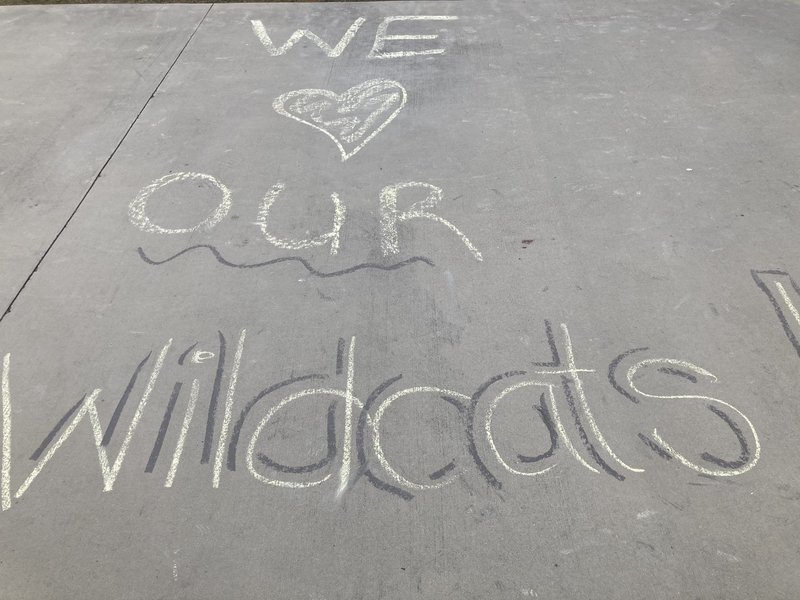 WE
♥
OUR
Wildcats